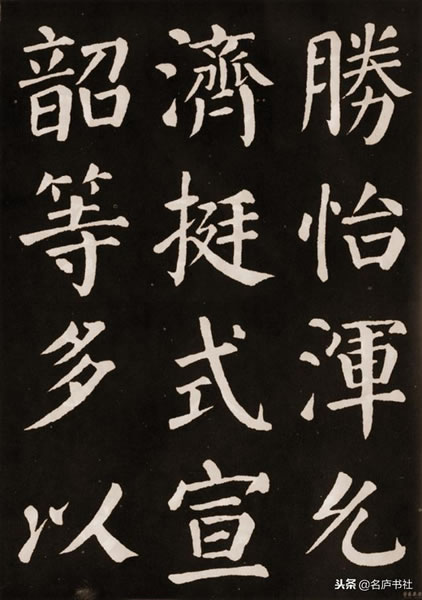 勝怡渾允
濟挺式宣
韶等多以
头条 @名庐书社